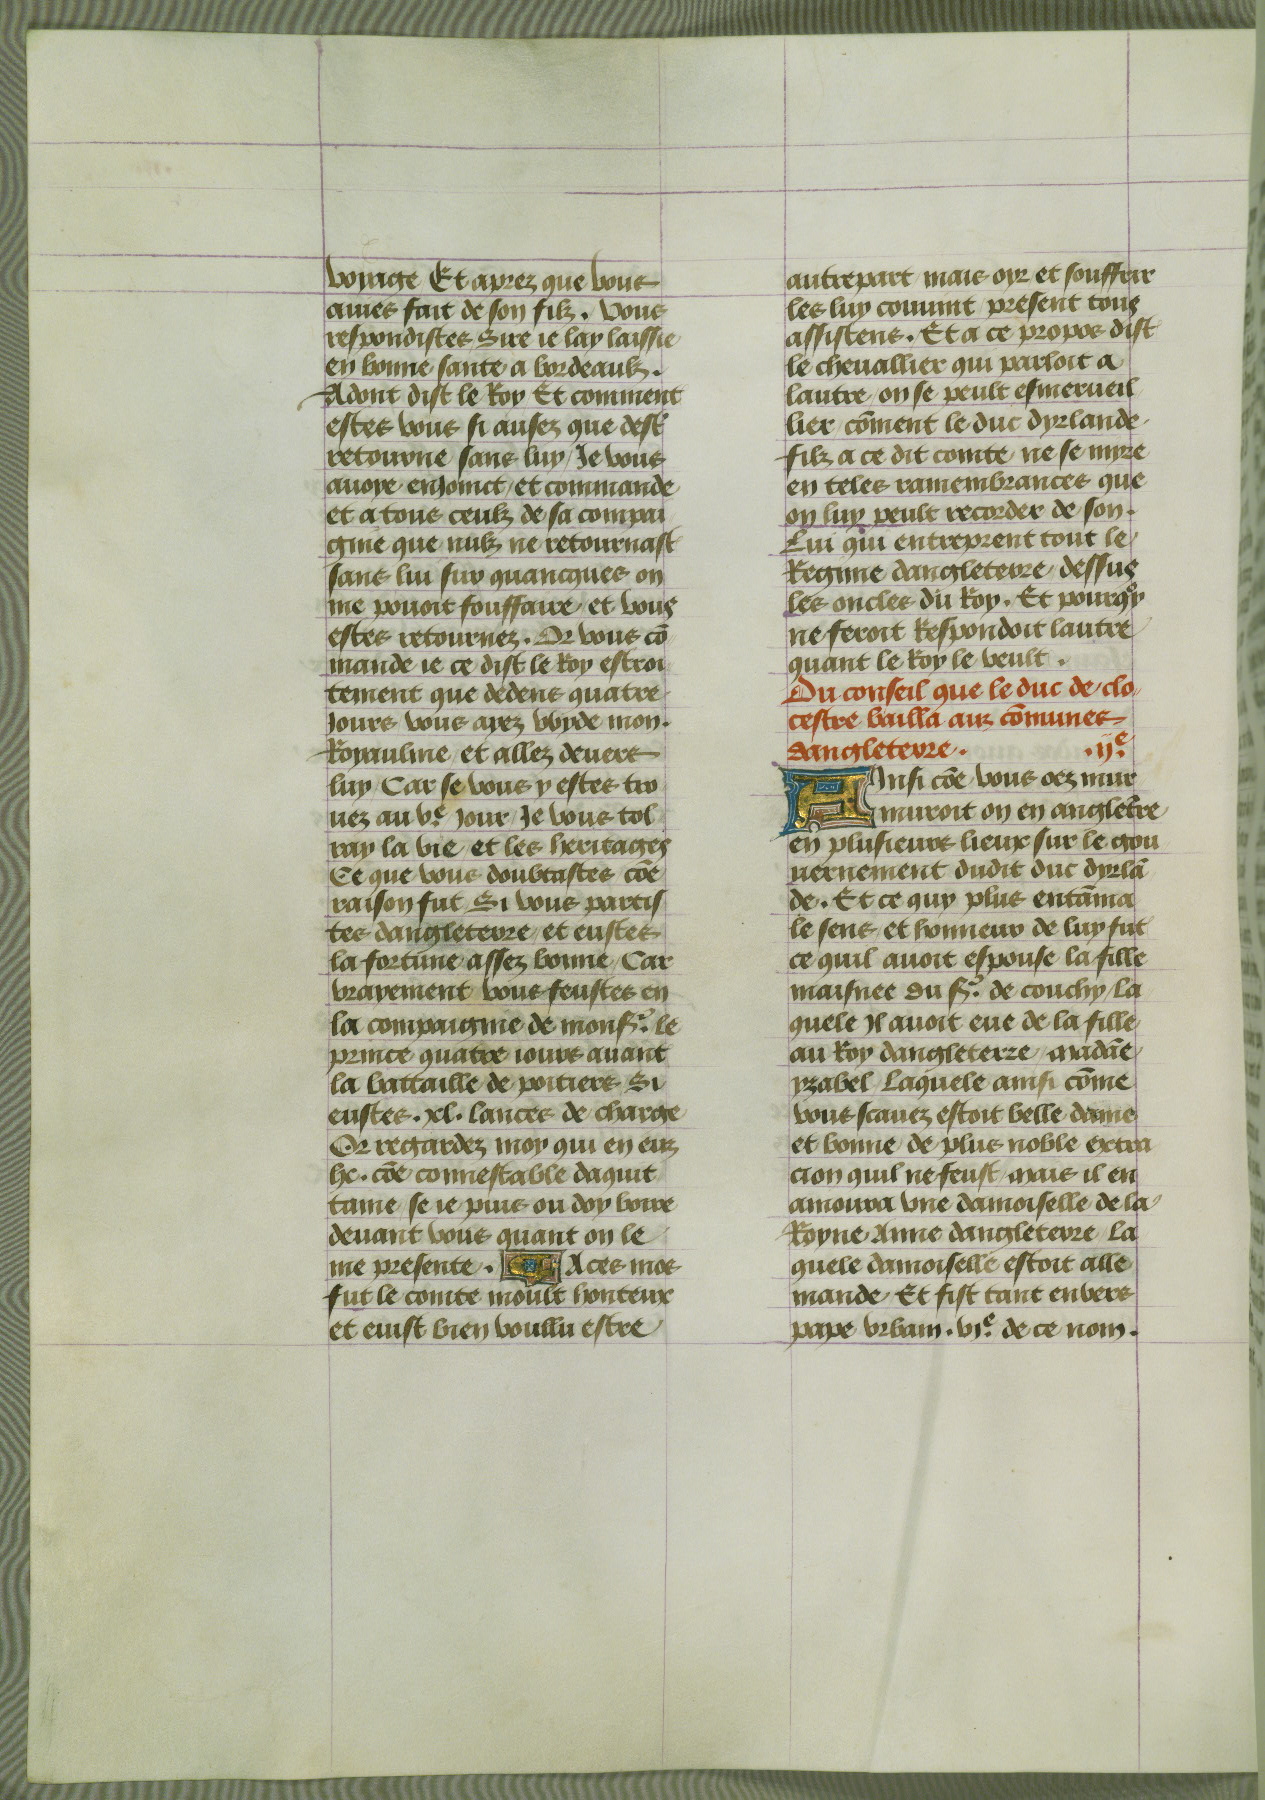 voyage Et aprez que vous
auies fait de son filz. Vous
respondistes Sire ie lay laissie
en bonne sante a bordeaulz.
Adont dist le Roy Et comment
estes vous si ausez que destre
retourne sans luy Je vous
auoye enjoinct et commande
et a tous ceulz de sa compai
gnie que nulz ne retournast
sans lui sur quancques on
me pouoit fourffaire et vous
estes retournez. Or vous cō
mande ie ce dist le Roy estroi
tement que dedens quatre
Jours vous ayez vuyde mon.
Royaulme et allez deuers
luy Car se vous y estes tro
uez au vᵉ. jour Je vous tol
ray la vie et les heritages
Ce que vous doubtastes cōe
raison fut Si vous partis
tes dangleterre et eustes
la fortune assez bonne Car
vrayement vous feustes en
la compaignie de monsʳ. le
prince quatre iours auant
la battaille de poitiers Si
eustes .xl. lances de charge
Or regardez moy qui en euz
hc. cōe connestable daquit
taine se ie puis ou doy boire
deuant vous quant on le
me presente. A ces mos
fut le comte moult honteux
et euist bien voullu estre
autrepart mais oyr et souffrir
les luy conuint present tous
assistens. Et a ce propos dist
le cheuallier qui parloit a
lautre on se peult esmerueil
lier cōment le duc dyrlande
filz a ce dit comte ne se myre
en teles ramembrances que
on luy peult recorder de son.
Lui qui entreprent tout le
Regime dangleterre dessus
les oncles du Roy. Et pourqͦy
ne feroit Respondoit lautre
quant le Roy le veult.
Du conseil que le duc de clo
cestre bailla aux cōmunes
dangleterre. .ijᵉ.
Ainsi cōe vous oez mur
muroit on en angletr̄e
en plusieurs lieux sur le gou
uernement dudit duc dyrlā
de. Et ce quy plus entāma
le sens et honneur de luy fut
ce quil auoit espouse la fille
maisnee du sʳ. de couchy la
quele Jl auoit eue de la fille
au Roy dangleterre madāe
yzabel Laquele ainsi cōme
vous scauez estoit belle dame
et bonne de plus noble extra
cion quil ne feust mais il en
amoura vne damoiselle de la
Royne Anne dangleterre La
quele damoiselle estoit alle
mande Et fist tant enuers
pape vrbain .vjᵉ. de ce nom.